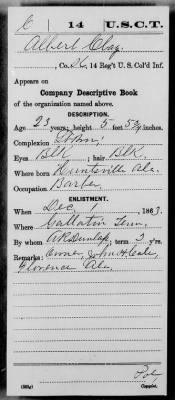 C | 14 | U.S.C.T.
Albert Clay
, Co. H, 14 Reg't U. S. Col'd Inf.
Appears on
Company Descriptive Book
of the organization named above.
DESCRIPTION.
Age 23 years; height 5 feet 5 3/4 inches.
Complexion
Eyes Blk ; hair Blk.
Where born Huntsville Ala.
Occupation Barber
ENLISTMENT.
When Dec 1 , 1863.
Where Gallatin Tenn.
By whom A R Dunlap, term 3 y'rs.
Remarks: Owner, John H
Florence Ala.
Copyist.